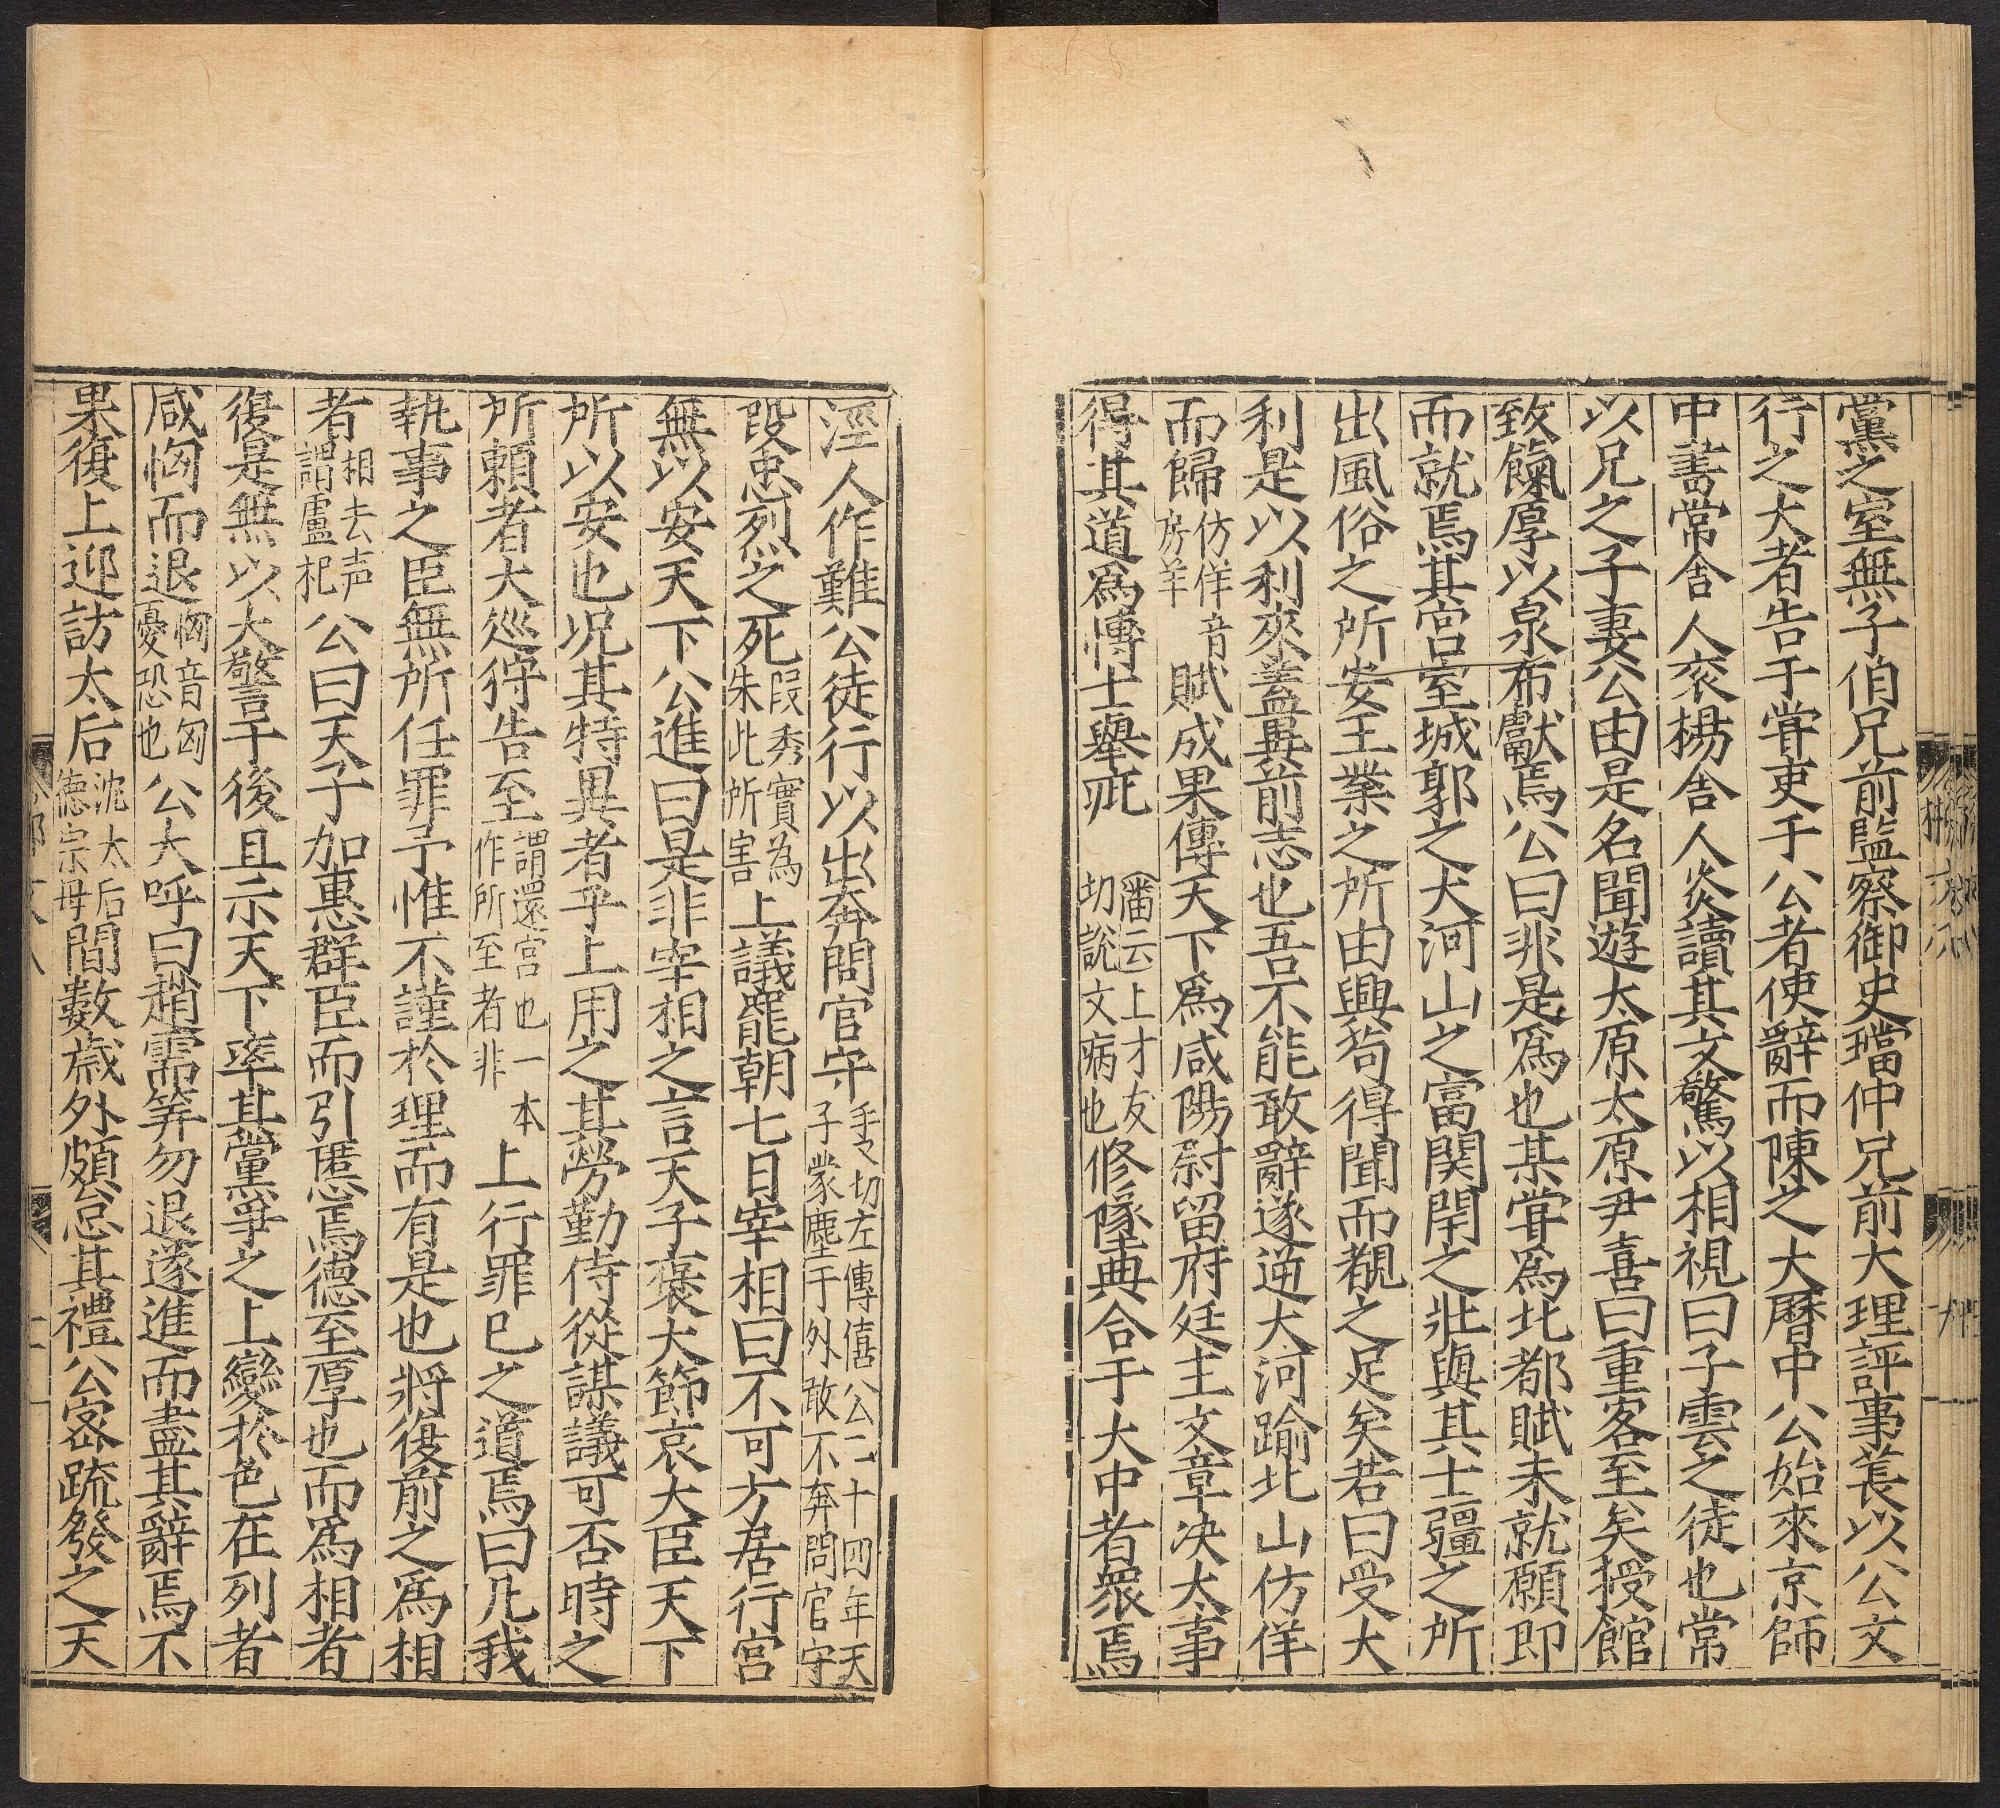 黨之室無子伯兄前監察御史璫仲兄前大理評事萇以公文
行之大者告于嘗吏于公者使辭而陳之大曆中公始來京師
中書常舍人衮楊舍人炎讀其文驚以相視曰子雲之徒也常
以兄之子妻公由是名聞遊太原太原尹喜曰重客至矣授館
致餼厚以泉布獻焉公曰非是爲也某嘗爲北都賦未就願即
而就焉其宮室城郭之大河山之富関閈之壯與其士疆之所
出風俗之所安王業之所由興苟得聞而覩之足矣若曰受大
利是以利來盖異前志也吾不能敢辭遂逆大河踰北山仿佯
而歸仿佯音房羊賦成果傳天下爲咸陽尉留府廷主文章决大事
得其道爲愽士舉疵潘云上才友切說文病也修墜典合于大中者衆焉
涇人作難公徒行以出奔問官守手又切左傳僖公二十四年天子蒙塵于外敢不奔問官守
段忠烈之死段秀實為朱泚所害上議罷朝七日宰相曰不可方居行宮
無以安天下公進曰是非宰相之言天子褒大節哀大臣天下
所以安也况其特異者乎上用之其勞勤侍從謀議可否時之
所賴者大巡狩告至謂還宮也一本作所至者非上行罪已之道焉曰凡我
執事之臣無所任罪予惟不謹於理而有是也將復前之爲相
者相去声謂盧杞公曰天子加惠群臣而引慝焉德至厚也而爲相者
復是無以大警于後且示天下率其黨爭之上變於色在列者
咸恟而退恟音匈憂恐也公大呼曰趙需等勿退遂進而盡其辭焉不
果復上迎訪太后沈太后德宗母間數歲外頗怠其禮公密疏發之天